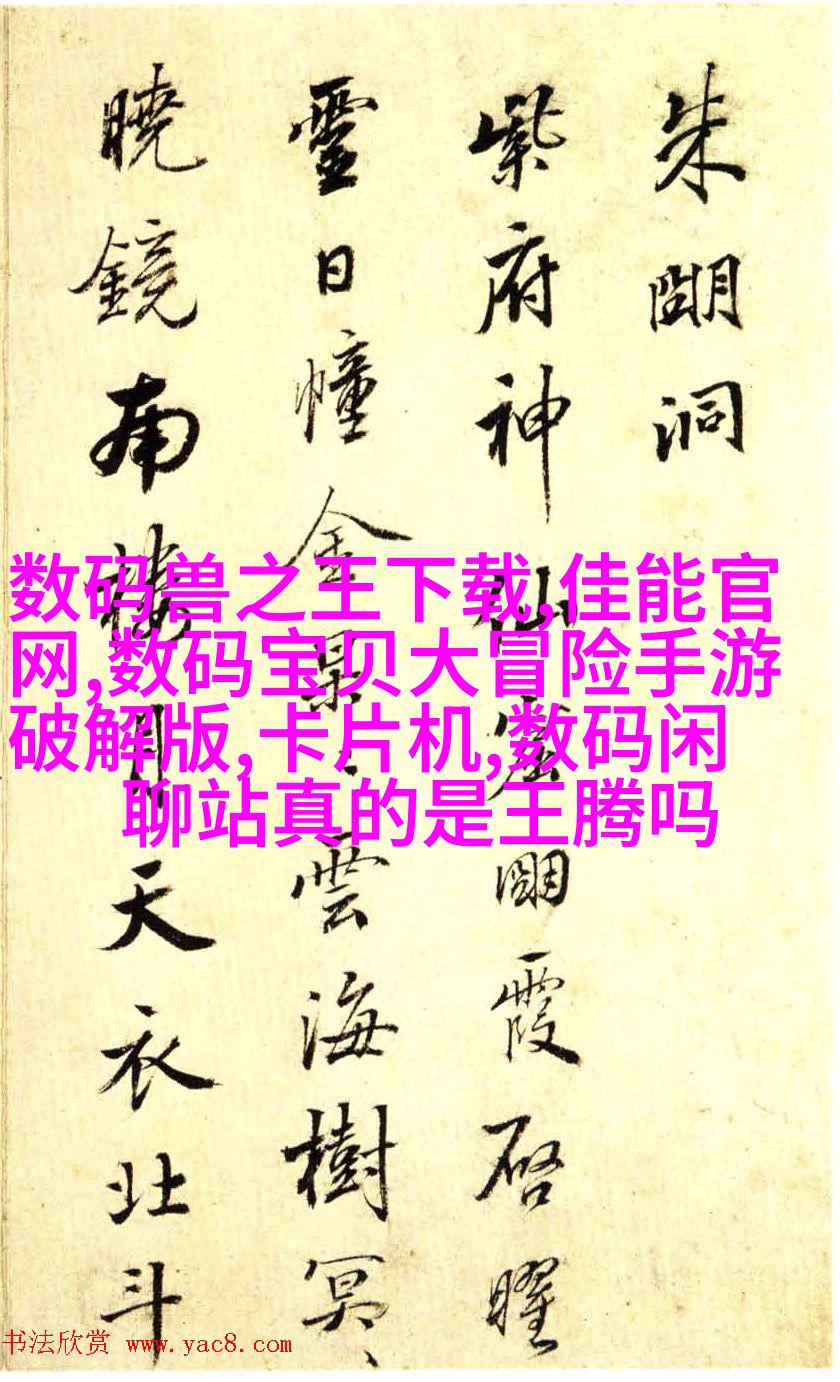 朱明洞
紫府神仙密明霞啓曜
靈日幢金景〻雲海樹冥〻
曉鏡南樓月天衣北斗
数码兽之王下载,佳能官
网,数码宝贝大冒险手游
破解版,卡片机,数码闲
聊站真的是王腾吗
书法欣赏 www.yac8.com